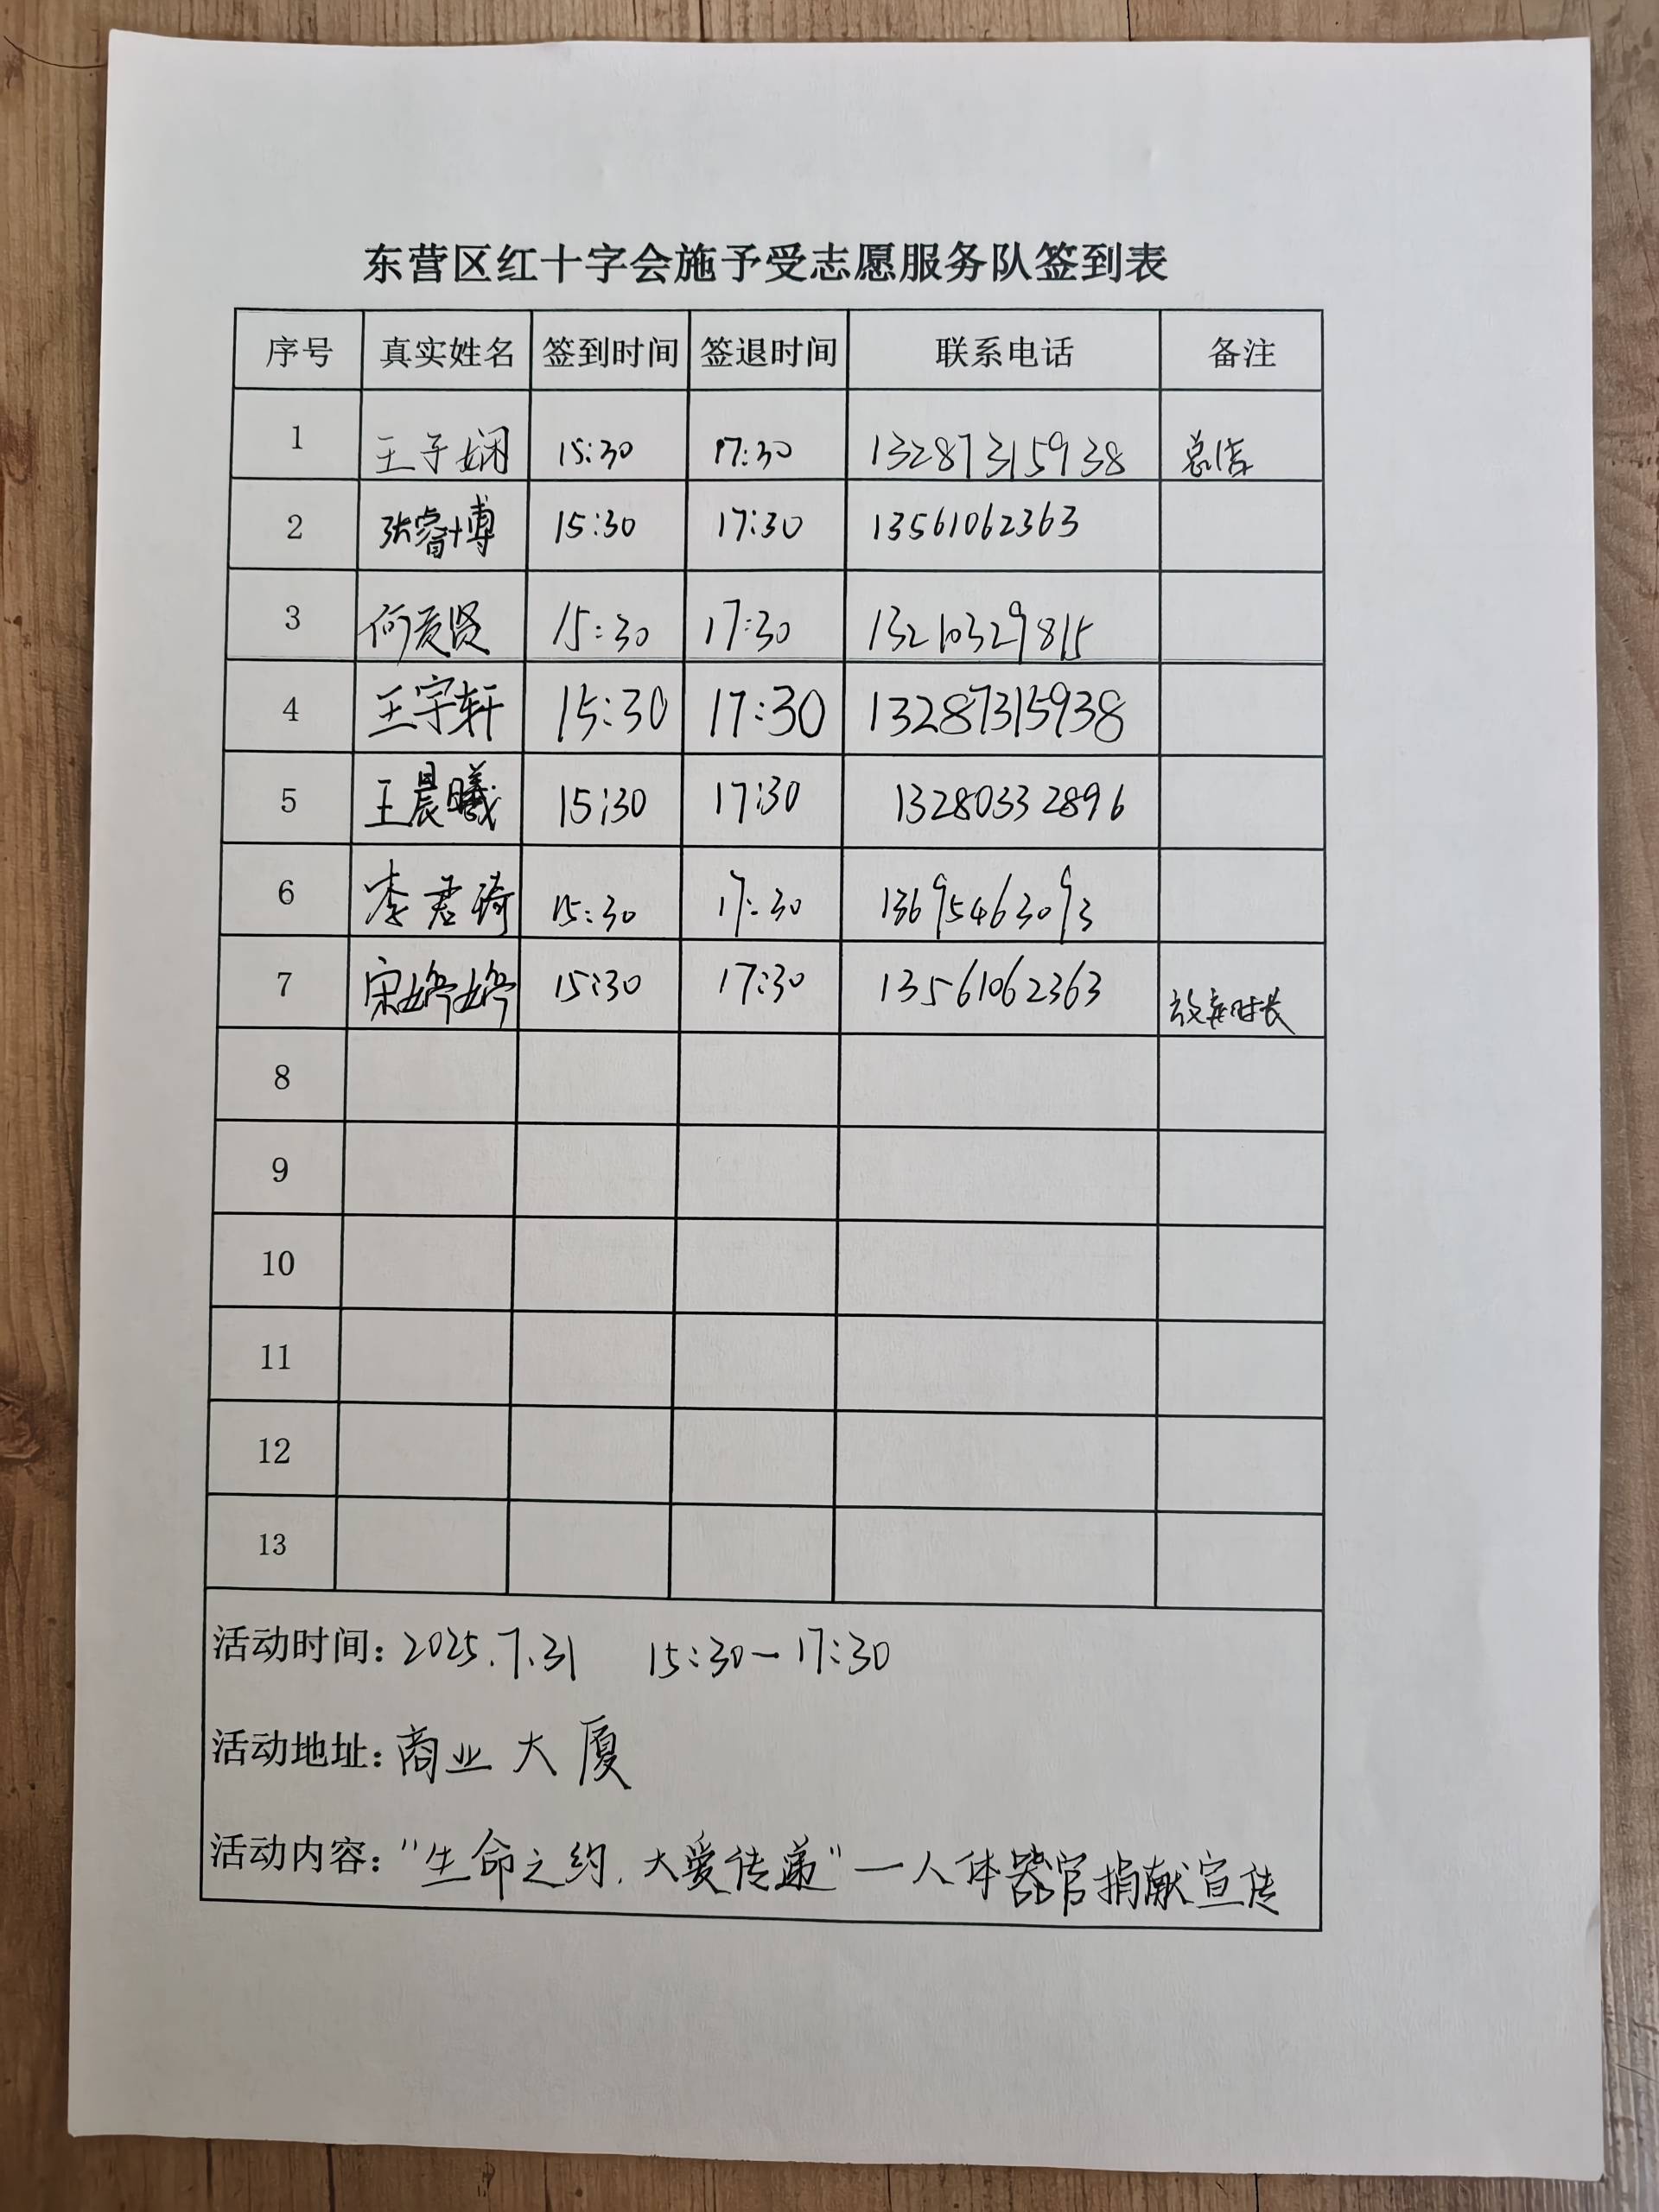 东营区红十字会施予受志愿服务队签到表
序号 真实姓名 签到时间 签退时间 联系电话 备注
1 王子娴 15:30 17:30 13287315938
2 张睿博 15:30 17:30 13561062363
3 何爱贤 15:30 17:30 13210329815
4 王宇轩 15:30 17:30 13287315938
5 王晨曦 15:30 17:30 13280332896
6 李君琦 15:30 17:30 13695463093
7 宋婷婷 15:30 17:30 13561062363 放弃时长
8
9
10
11
12
13
活动时间：2025.7.31 15:30—17:30
活动地址：商业大厦
活动内容："生命之约，大爱传递"—人体器官捐献宣传